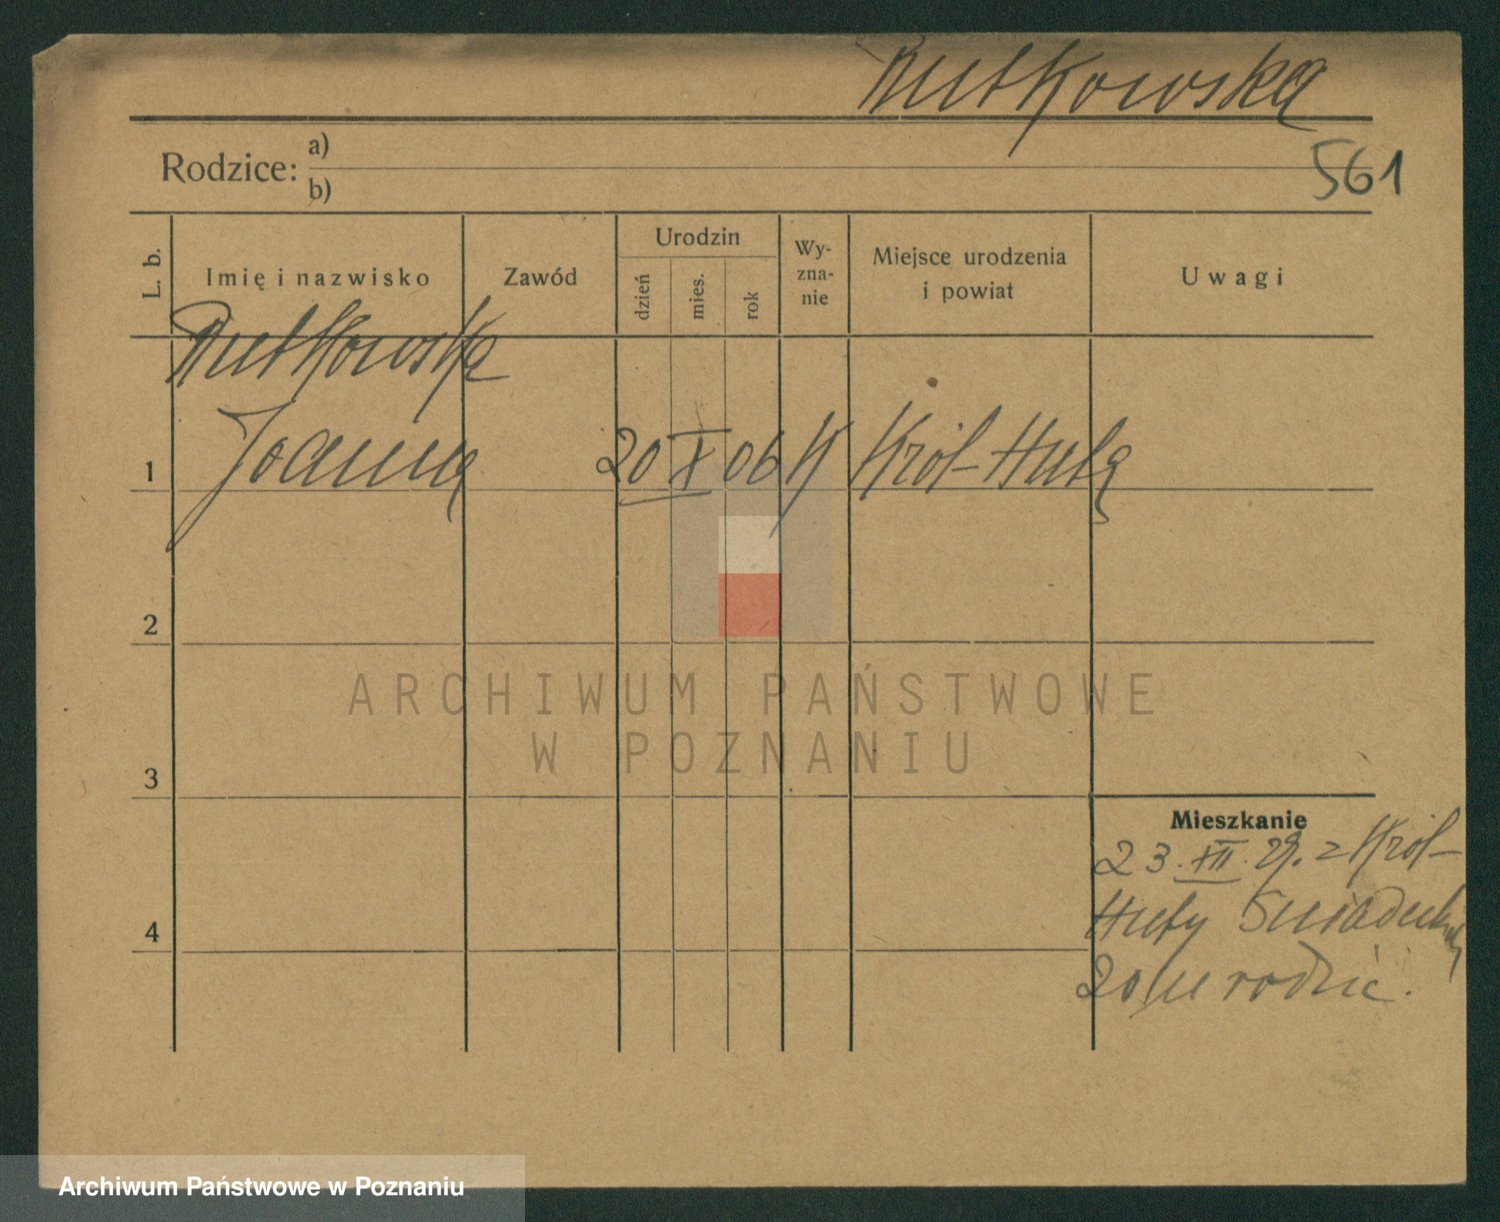 Rutkowska
561
Rodzice: a)
b)
L. b.
Imię i nazwisko
Zawód
Urodzin
dzień
mies.
rok
Wy-
zna-
nie
Miejsce urodzenia
i powiat
Uwagi
Rutkowska
1 Joanna 20 X 06 K Król-Huta
2
3
4
Mieszkanie
23.XII.29. z Król-
Huty Śniadeckich
20 rodzic.
ARCHIWUM PAŃSTWOWE
W POZNANIU
Archiwum Państwowe w Poznaniu